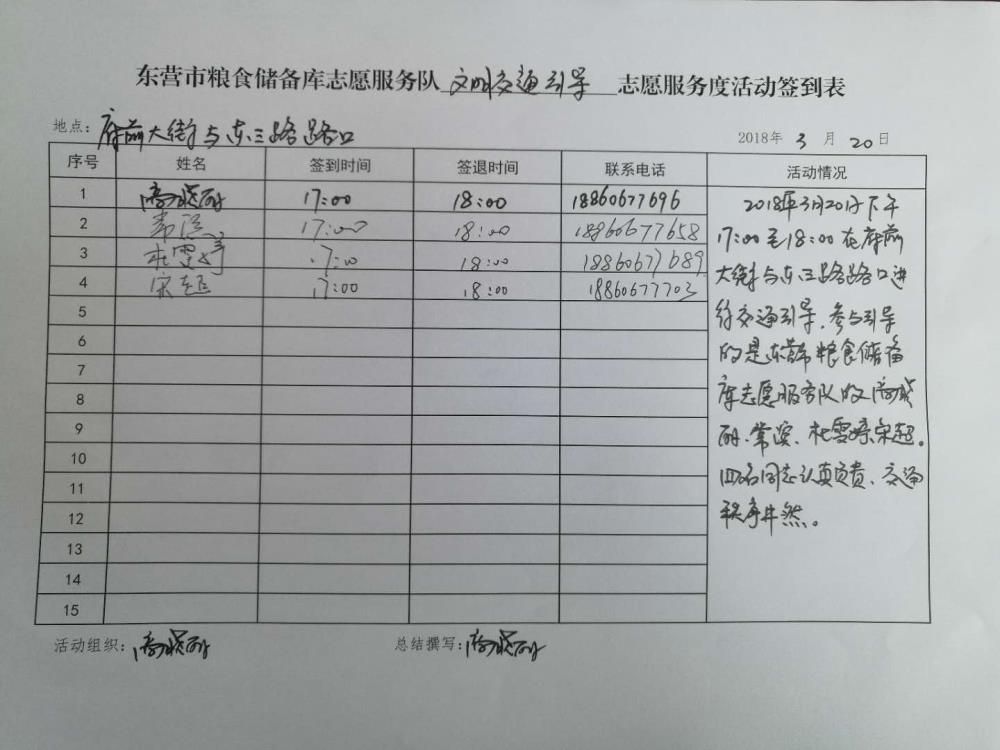 东营市粮食储备库志愿服务队 文明交通引导 志愿服务度活动签到表
地点：府前大街与东三路路口 2018年 3 月 20 日
序号 姓名 签到时间 签退时间 联系电话 活动情况
1 17:00 18:00 18860677696
2 常滨 17:00 18:00 18860677658
3 杜雪婷 17:00 18:00 18860677689
4 宋超 17:00 18:00 18860677703
5
6
7
8
9
10
11
12
13
14
15
2018年3月20日下午
17:00至18:00在府前
大街与东三路路口进
行交通引导，参与引导
的是东营市粮食储备
库志愿服务队的
丽、常滨、杜雪婷、宋超。
四名同志认真负责、交通
秩序井然。
活动组织： 总结撰写：